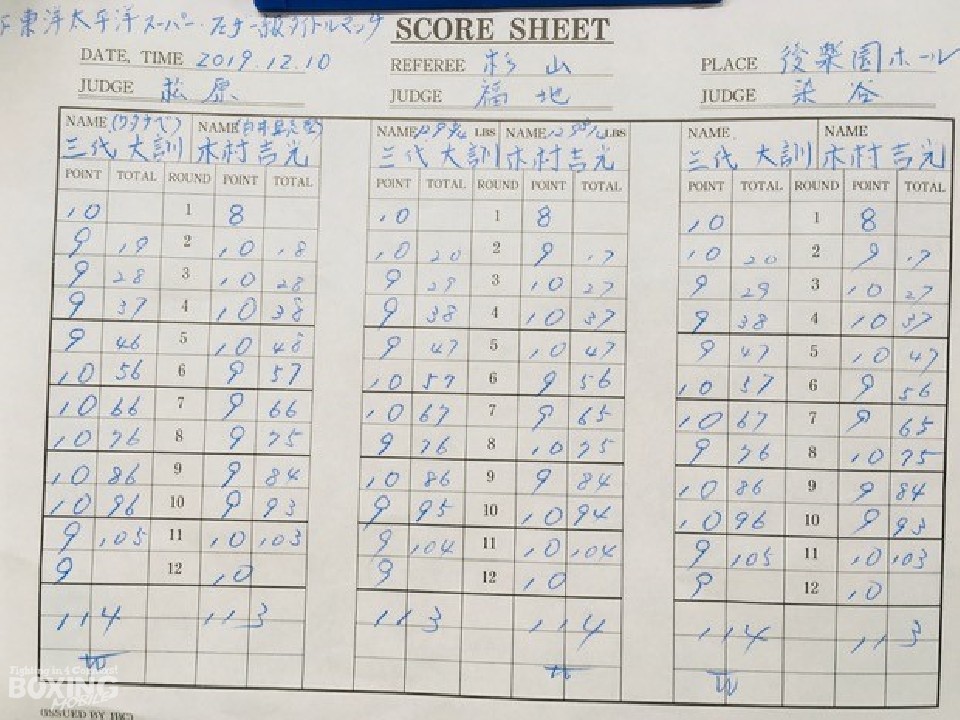 東洋太平洋スーパー・フェザー級タイトルマッチ
SCORE SHEET
DATE, TIME 2019.12.10 REFEREE 杉山 PLACE 後樂園ホール
JUDGE 松原 JUDGE 福地 JUDGE 染谷
NAME (ワタナベ) NAME (白井・具志堅) NAME LBS NAME LBS NAME NAME
三代大訓 木村吉光 三代大訓 木村吉光 三代大訓 木村吉光
POINT TOTAL ROUND POINT TOTAL POINT TOTAL ROUND POINT TOTAL POINT TOTAL ROUND POINT TOTAL
10 1 8 10 1 8 10 1 8
9 19 2 10 18 10 20 2 9 17 10 20 2 9 17
9 28 3 10 28 9 29 3 10 27 9 29 3 10 27
9 37 4 10 38 9 38 4 10 37 9 38 4 10 37
9 46 5 10 48 9 47 5 10 47 9 47 5 10 47
10 56 6 9 57 10 57 6 9 56 10 57 6 9 56
10 66 7 9 66 10 67 7 9 65 10 67 7 9 65
10 76 8 9 75 9 76 8 10 75 9 76 8 10 75
10 86 9 9 84 10 86 9 9 84 10 86 9 9 84
10 96 10 9 93 9 95 10 10 94 10 96 10 9 93
9 105 11 10 103 9 104 11 10 104 9 105 11 10 103
9 12 10 9 12 10 9 12 10
114 113 113 114 114 113
BOXING
MOBILE
(ISSUED BY JBC)